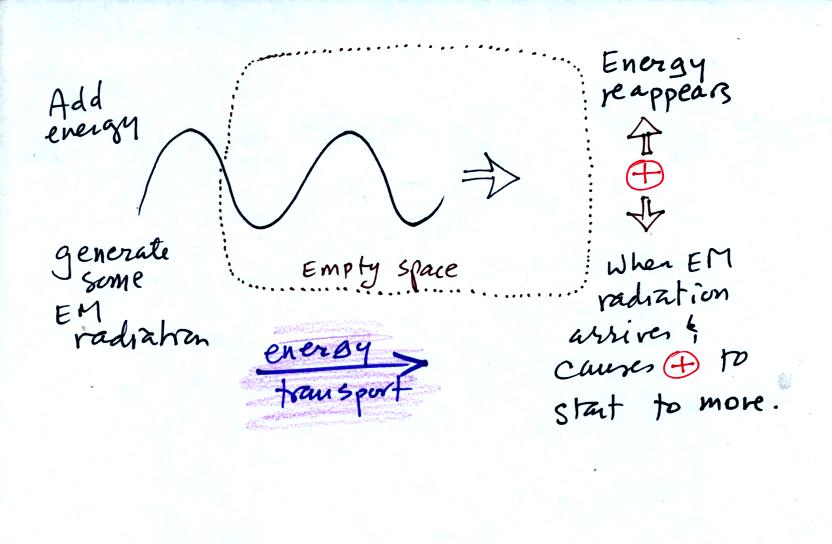 Add
energy
generate
some
EM
radiation
Empty space
energy
transport
Energy
reappears
+
when EM
radiation
arrives &
causes + to
start to move.